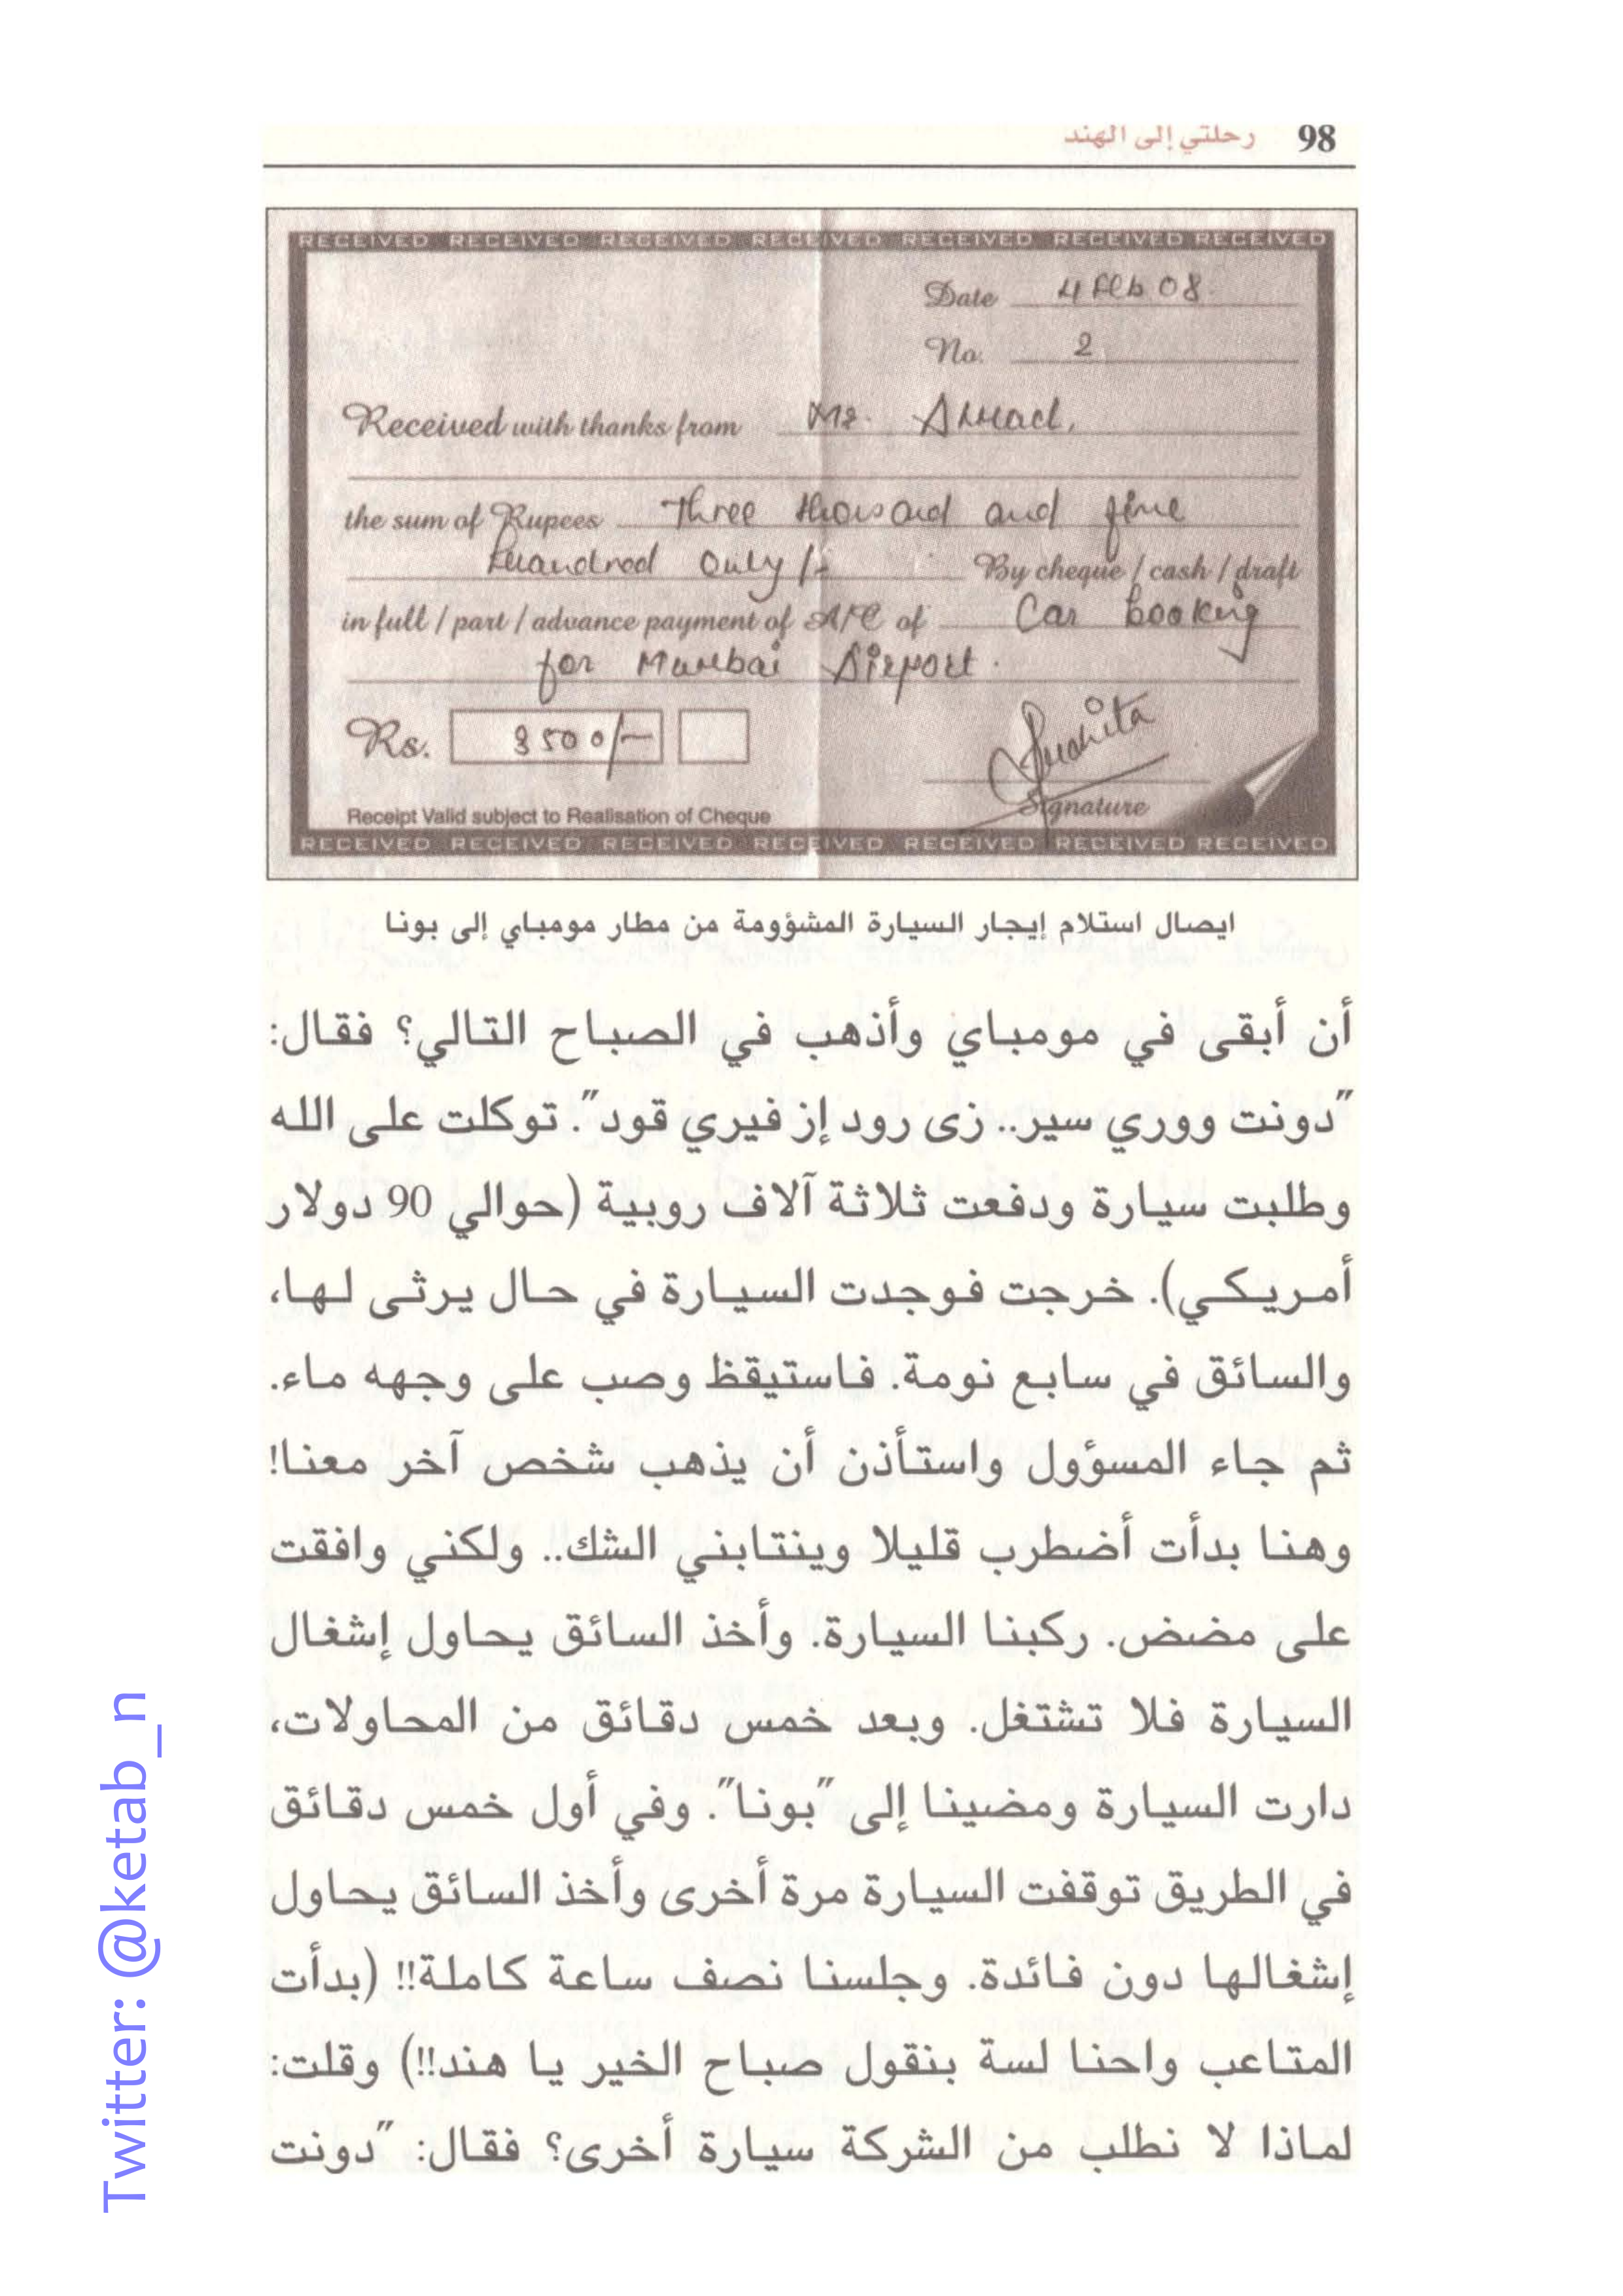 98 رحلتي إلى الهند
RECEIVED RECEIVED RECEIVED RECEIVED RECEIVED RECEIVED RECEIVED
Date 4 Feb 08.
No. 2
Received with thanks from Mr. Ahmad,
the sum of Rupees Three thousand and five
huandred only/- By cheque / cash / draft
in full / part / advance payment of A/C of Car booking
for Mumbai Airport.
Rs. 3500/-
Receipt Valid subject to Realisation of Cheque
Signature
RECEIVED RECEIVED RECEIVED RECEIVED RECEIVED RECEIVED RECEIVED
ايصال استلام إيجار السيارة المشؤومة من مطار مومباي إلى بونا
أن أبقى في مومباي وأذهب في الصباح التالي؟ فقال:
"دونت ووري سير.. زى رود إز فيري قود". توكلت على الله
وطلبت سيارة ودفعت ثلاثة آلاف روبية (حوالي 90 دولار
أمريكي). خرجت فوجدت السيارة في حال يرثى لها،
والسائق في سابع نومة. فاستيقظ وصب على وجهه ماء.
ثم جاء المسؤول واستأذن أن يذهب شخص آخر معنا!
وهنا بدأت أضطرب قليلا وينتابني الشك.. ولكني وافقت
على مضض. ركبنا السيارة. وأخذ السائق يحاول إشغال
السيارة فلا تشتغل. وبعد خمس دقائق من المحاولات،
دارت السيارة ومضينا إلى "بونا". وفي أول خمس دقائق
في الطريق توقفت السيارة مرة أخرى وأخذ السائق يحاول
إشغالها دون فائدة. وجلسنا نصف ساعة كاملة!! (بدأت
المتاعب واحنا لسة بنقول صباح الخير يا هند!!) وقلت:
لماذا لا نطلب من الشركة سيارة أخرى؟ فقال: "دونت
Twitter: @ketab_n